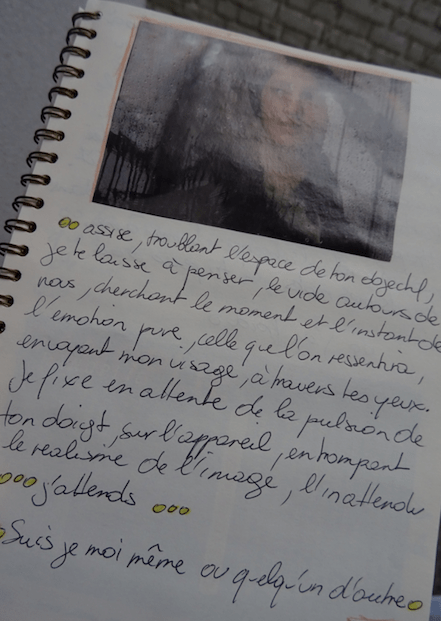 assise, troublant l'espace de ton objectif,
je te laisse à penser, le vide autours de
nous, cherchant le moment et l'instant de
l'émotion pure, celle que l'on ressentira,
envoyant mon visage, à travers tes yeux.
Je fixe en attente de la pulsion de
ton doigt, sur l'appareil, en trompant
le realisme de l'image, l'inattendu
°°° j'attends °°°
Suis je moi même ou quelqu'un d'autre